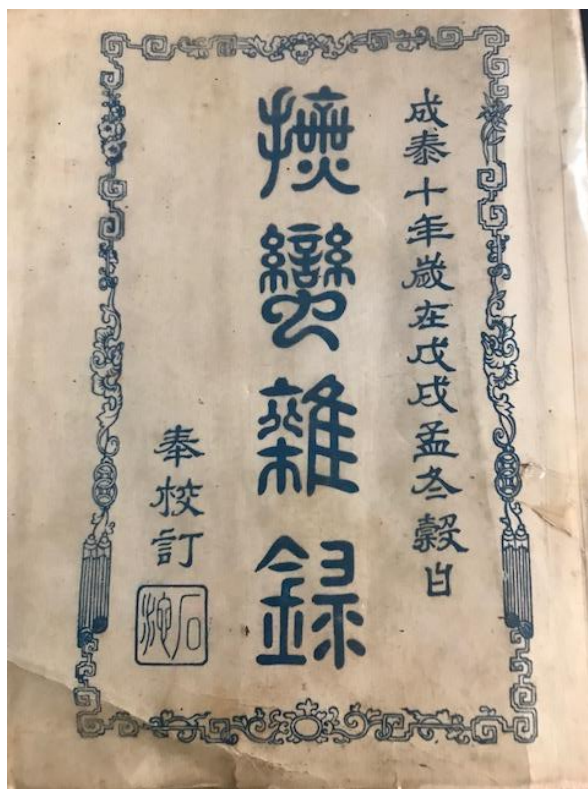 成泰十年歲在戊戌孟冬穀日
撫蠻雜録
奉校訂